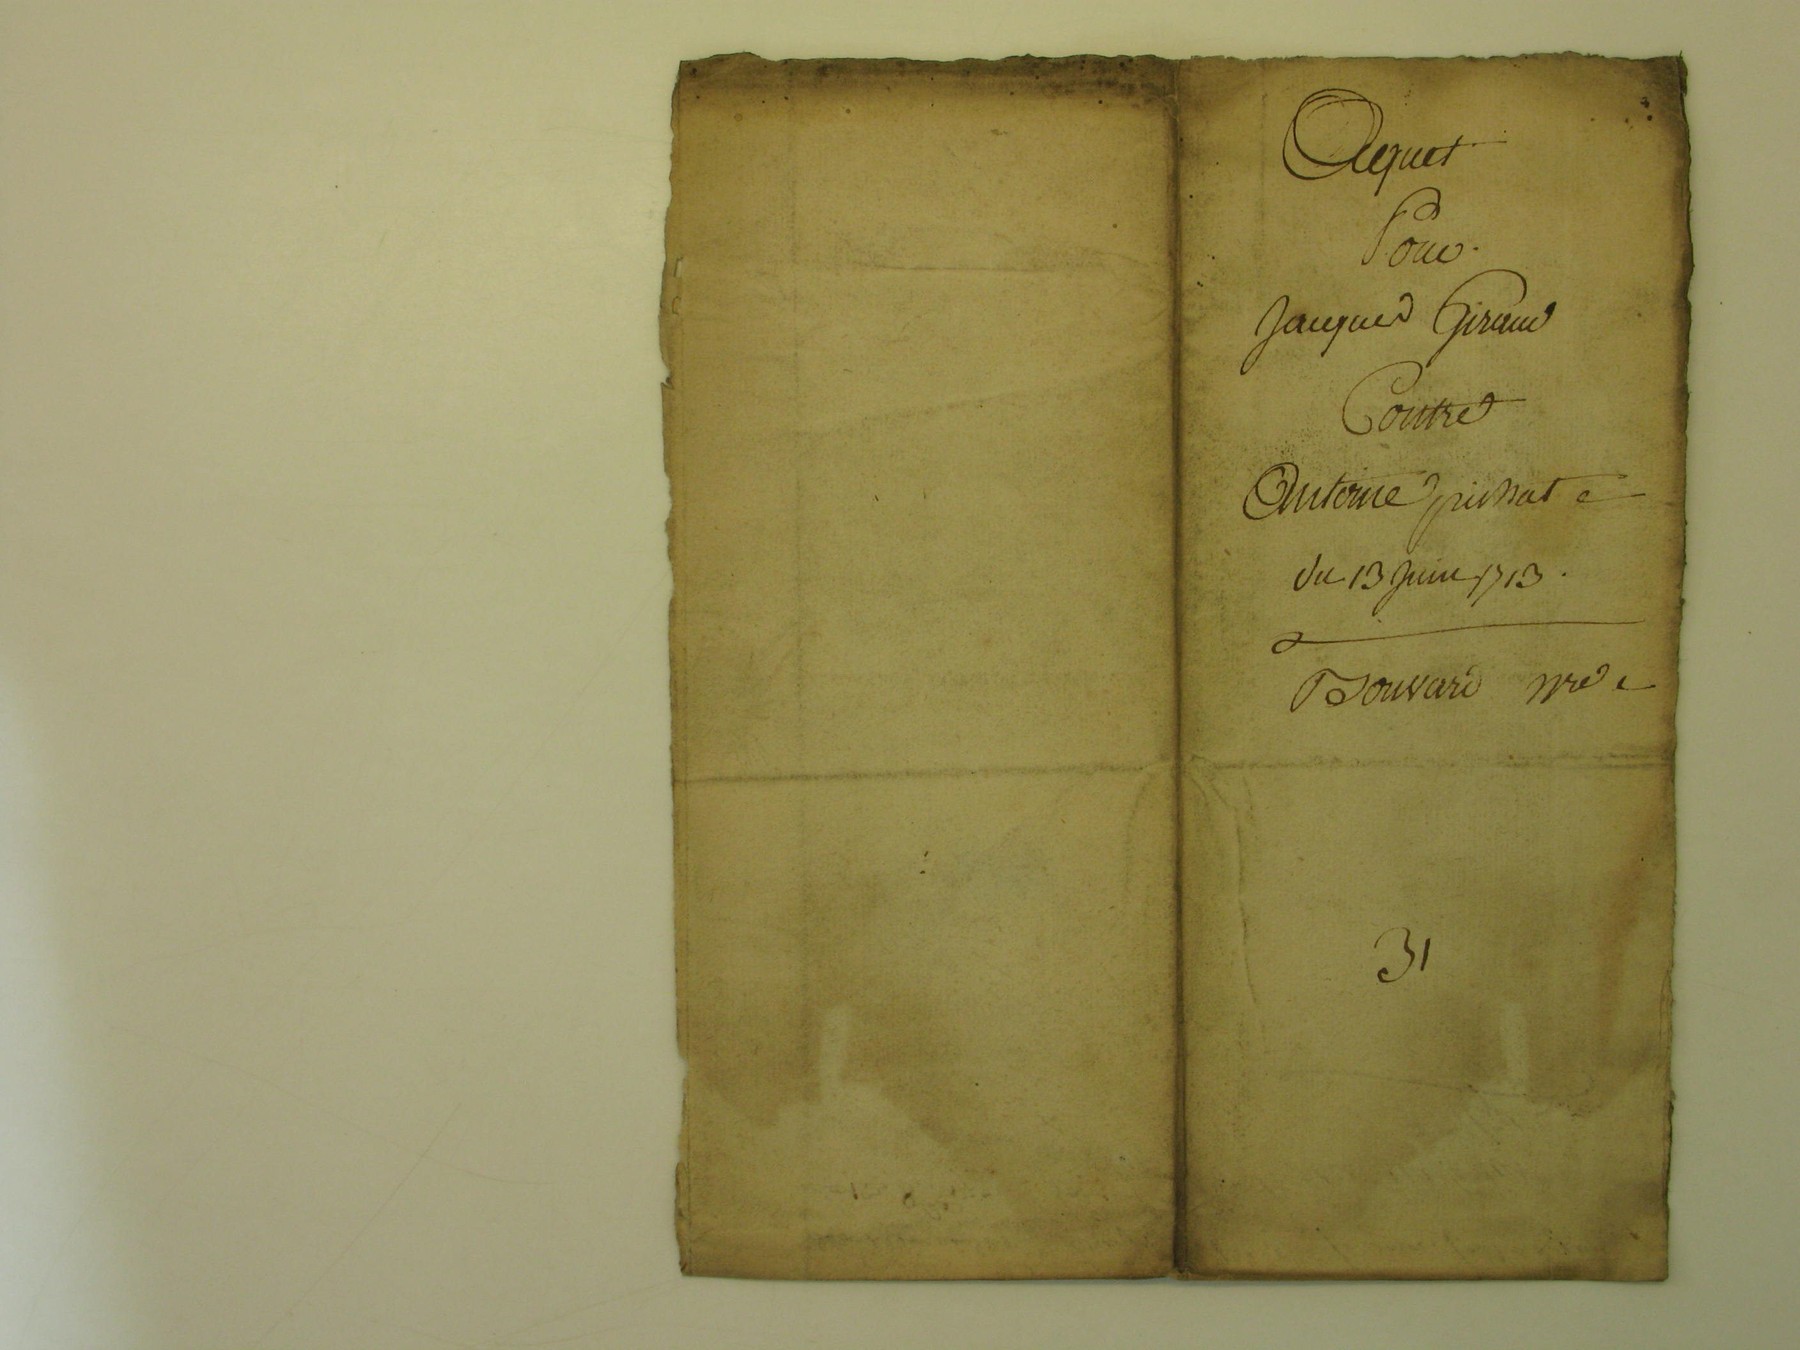 Acquet
Pour
Jacques Giraud
Contre
Antoine
du 13 Juin 1713.
Bouvard nre
31